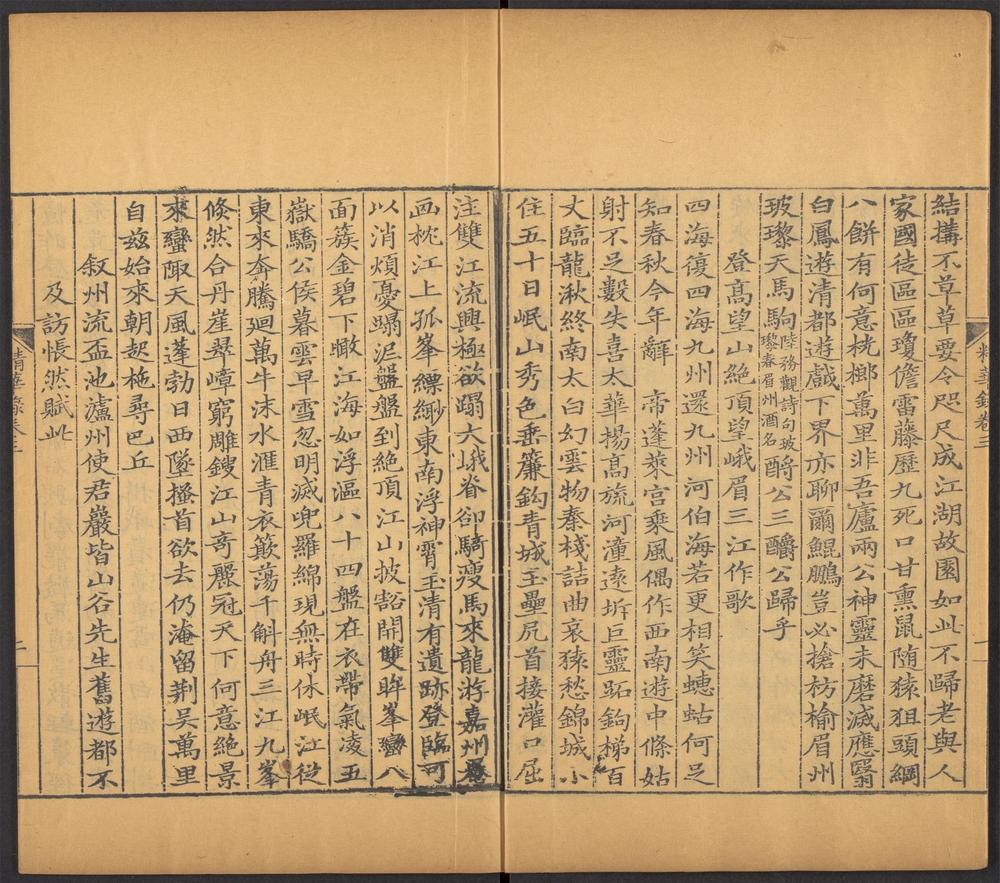 結搆不草草要令咫尺成江湖故園如此不歸老與人
家國徒區區瓊儋雷藤歷九死口甘熏鼠随猿狙頭綱
八餅有何意桄榔萬里非吾廬兩公神靈未磨滅應翳
白鳳遊清都遊戲下界亦聊爾鯤鵬豈必搶枋榆眉州
玻瓈天馬駒陸務觀詩句玻瓈春眉州酒名酹公三釂公歸乎
登高望山絶頂望峨眉三江作歌
四海復四海九州還九州河伯海若更相笑蟪蛄何足
知春秋今年辭 帝蓬萊宮乘風偶作西南遊中條姑
射不足數失喜太華揚高旒河潼遠坼巨靈跖鉤梯百
丈臨龍湫終南太白幻雲物秦棧詰曲哀猿愁錦城小
住五十日岷山秀色乗簾鉤青城玉壘尻首接灌口屈
注雙江流興極欲躡大峨脊卻騎瘦馬來龍游嘉州
画枕江上孤峯縹緲東南浮神霄玉清有遺跡登臨可
以消煩憂躡泥盤盤到絶頂江山披豁開雙眸峯巒八
面簇金碧下瞰江海如浮漚八十四盤在衣帶氣凌五
嶽驕公侯暮雲早雪忽明滅兜羅綿現無時休岷江從
東來奔騰廻萬牛沫水滙青衣簸蕩千斛舟三江九峯
倐然合丹崖翠嶂窮雕鎪江山奇麗冠天下何意絶景
來蠻陬天風蓬勃日西墜搔首欲去仍淹留荆吴萬里
自兹始來朝起柂尋巴丘
叙州流盃池瀘州使君巖皆山谷先生舊遊都不
及訪悵然賦此
精華錄卷三
一
精華錄卷三
二